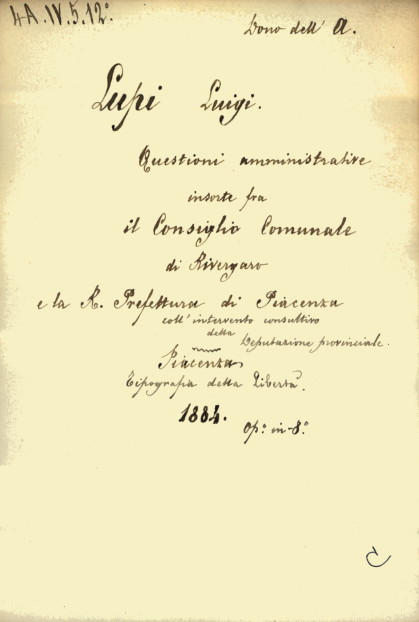 4A.IV.5.12°.
Dono dell' A.
Lupi Luigi.
Questioni amministrative
insorte fra
il Consiglio Comunale
di Rivergaro
e la R. Prefettura di Piacenza
coll' intervento consultivo
della
Deputazione provinciale.
Piacenza
Tipografia della Libertà.
1884.
Op.° in-8.°
C